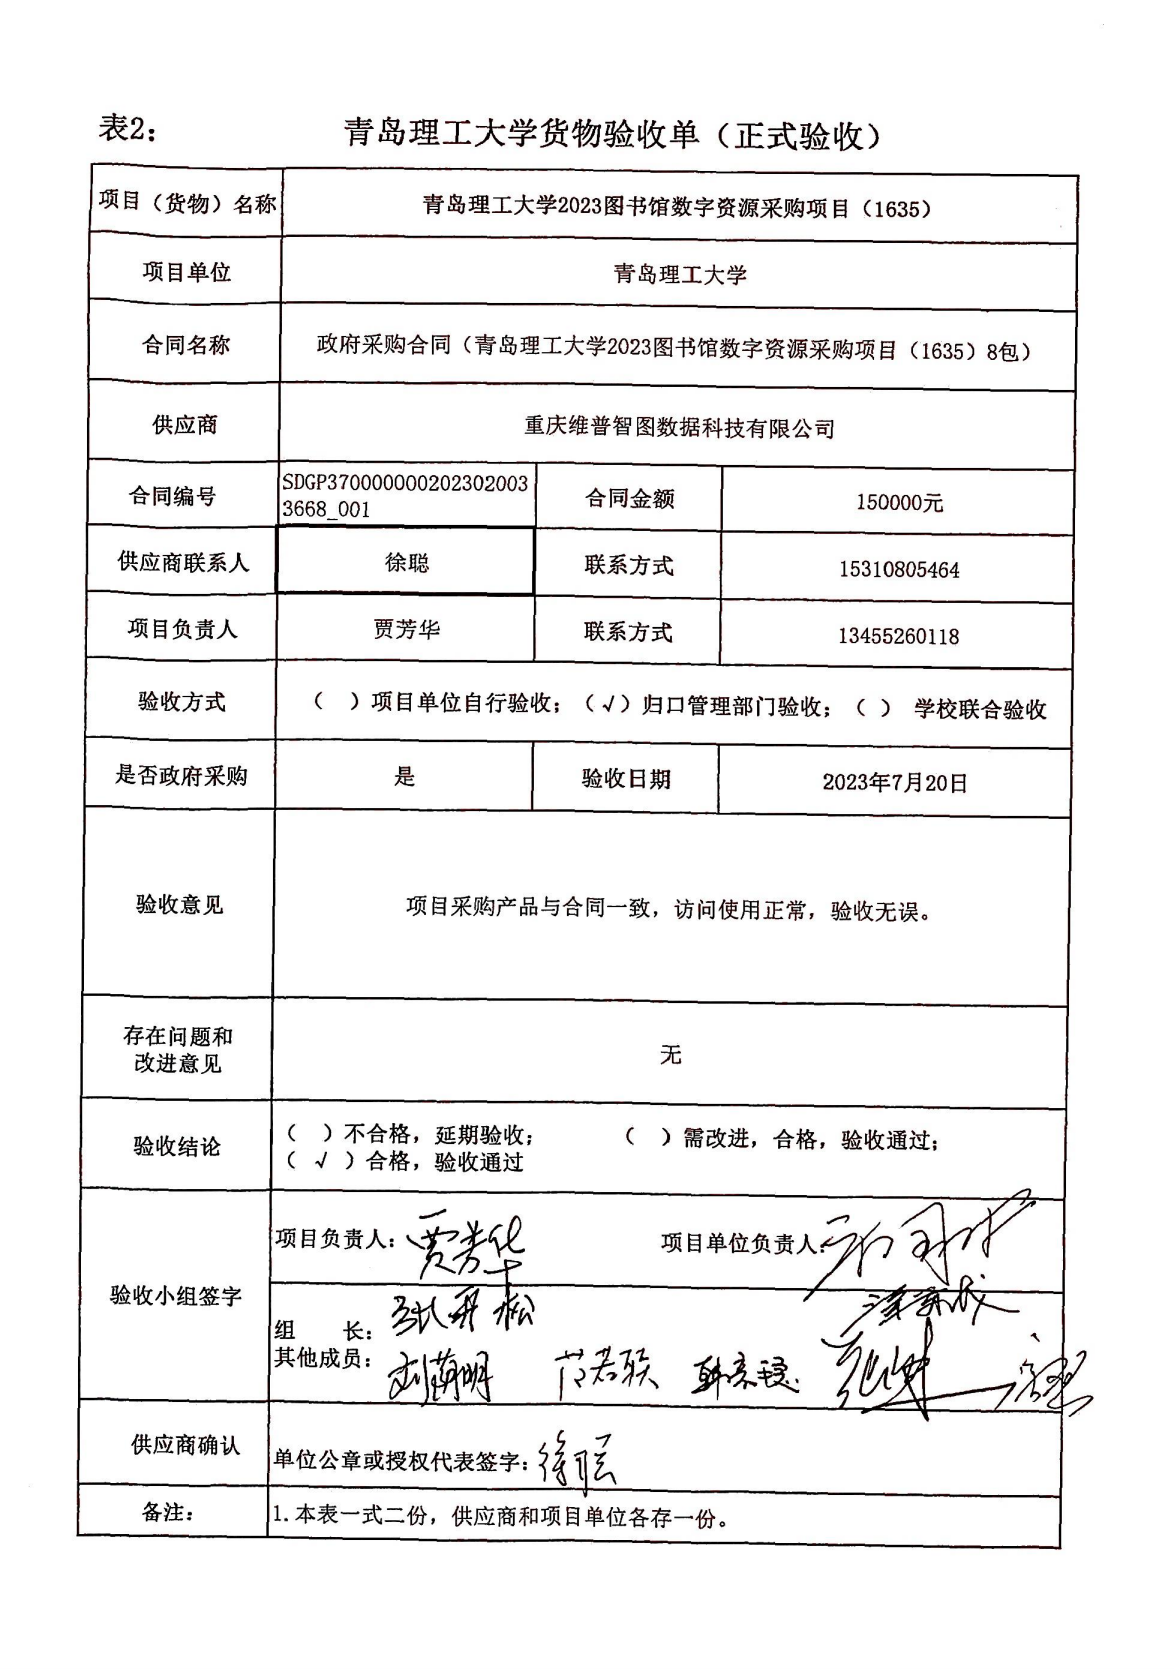 表2： 青岛理工大学货物验收单（正式验收）
项目（货物）名称 青岛理工大学2023图书馆数字资源采购项目（1635）
项目单位 青岛理工大学
合同名称 政府采购合同（青岛理工大学2023图书馆数字资源采购项目（1635）8包）
供应商 重庆维普智图数据科技有限公司
合同编号 SDGP370000000202302003
3668_001 合同金额 150000元
供应商联系人 徐聪 联系方式 15310805464
项目负责人 贾芳华 联系方式 13455260118
验收方式 （ ）项目单位自行验收；（√）归口管理部门验收；（ ） 学校联合验收
是否政府采购 是 验收日期 2023年7月20日
验收意见 项目采购产品与合同一致，访问使用正常，验收无误。
存在问题和
改进意见 无
验收结论 （ ）不合格，延期验收； （ ）需改进，合格，验收通过；
（ √ ）合格，验收通过
验收小组签字 项目负责人：贾芳华 项目单位负责人：
组 长：
其他成员：
供应商确认 单位公章或授权代表签字：徐聪
备注： 1.本表一式二份，供应商和项目单位各存一份。